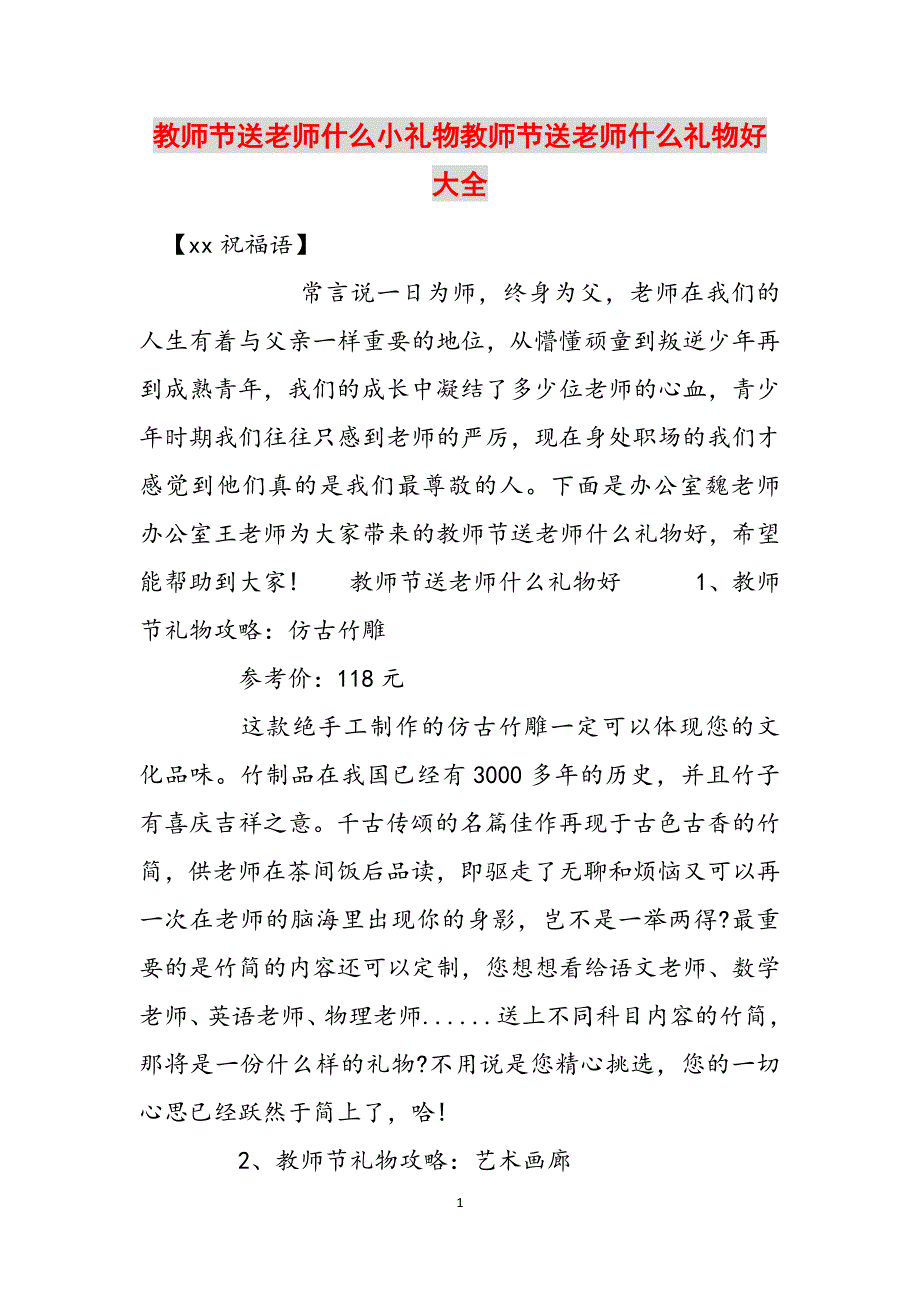 教师节送老师什么小礼物教师节送老师什么礼物好
大全
【xx祝福语】
常言说一日为师，终身为父，老师在我们的
人生有着与父亲一样重要的地位，从懵懂顽童到叛逆少年再
到成熟青年，我们的成长中凝结了多少位老师的心血，青少
年时期我们往往只感到老师的严厉，现在身处职场的我们才
感觉到他们真的是我们最尊敬的人。下面是办公室魏老师
办公室王老师为大家带来的教师节送老师什么礼物好，希望
能帮助到大家! 教师节送老师什么礼物好 1、教师
节礼物攻略：仿古竹雕
参考价：118元
这款绝手工制作的仿古竹雕一定可以体现您的文
化品味。竹制品在我国已经有3000多年的历史，并且竹子
有喜庆吉祥之意。千古传颂的名篇佳作再现于古色古香的竹
简，供老师在茶间饭后品读，即驱走了无聊和烦恼又可以再
一次在老师的脑海里出现你的身影，岂不是一举两得?最重
要的是竹简的内容还可以定制，您想想看给语文老师、数学
老师、英语老师、物理老师......送上不同科目内容的竹简，
那将是一份什么样的礼物?不用说是您精心挑选，您的一切
心思已经跃然于简上了，哈!
2、教师节礼物攻略：艺术画廊
1